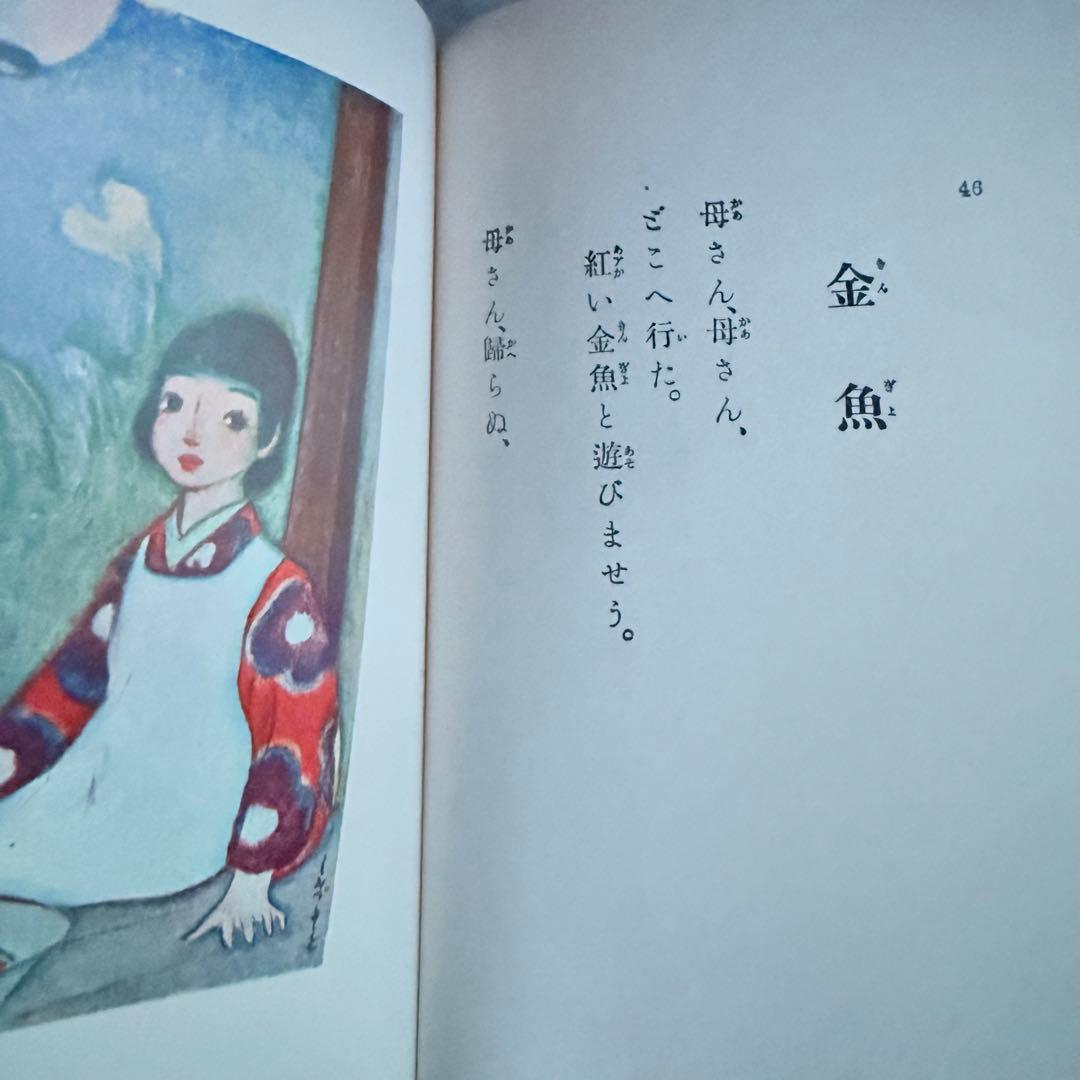 46
金魚
母さん、母さん、
どこへ行た。
紅い金魚と遊びませう。
母さん、歸らぬ、